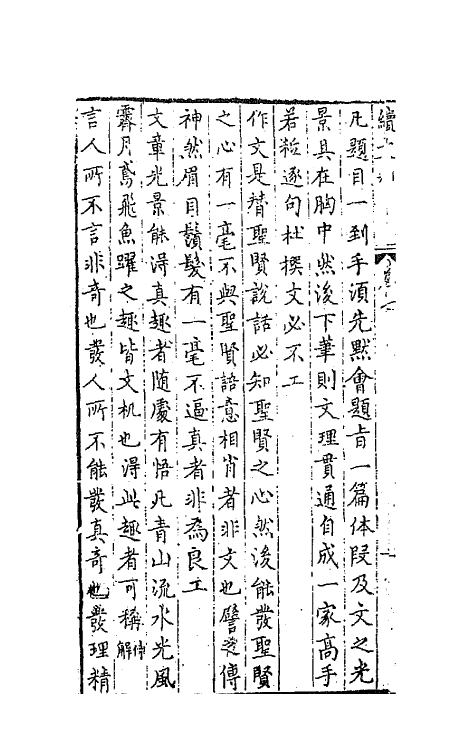 續
凡題目一到手須先默會題旨一篇体段及文之光
景具在胸中然後下筆則文理貫通自成一家高手
若粘逐句杜撰文必不工
作文是替聖賢說話必知聖賢之心然後能發聖賢
之心有一毫不與聖賢語意相肖者非文也譬之傳
神然眉目鬚髮有一毫不逼真者非為良工
文章光景能淂真趣者随處有悟凡青山流水光風
霽月鳶飛魚躍之趣皆文机也淂此趣者可稱神解
言人所不言非奇也發人所不能發真奇也發理精